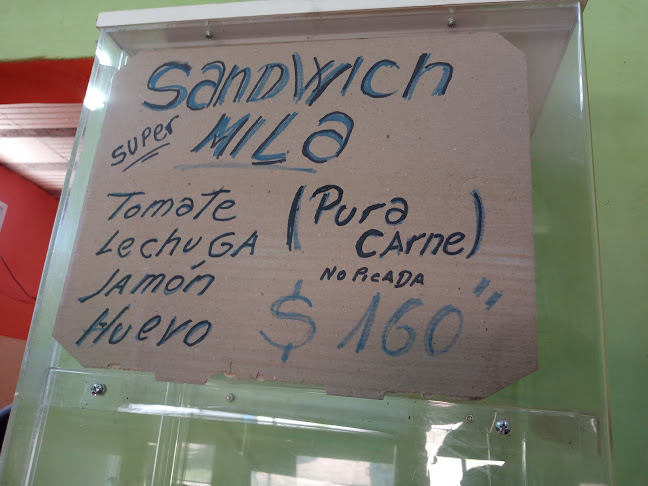 SANDWICH
SUPER MILA
Tomate
LechuGA
JAMÓN
Huevo
(Pura
CARne)
NO PICADA
$160"